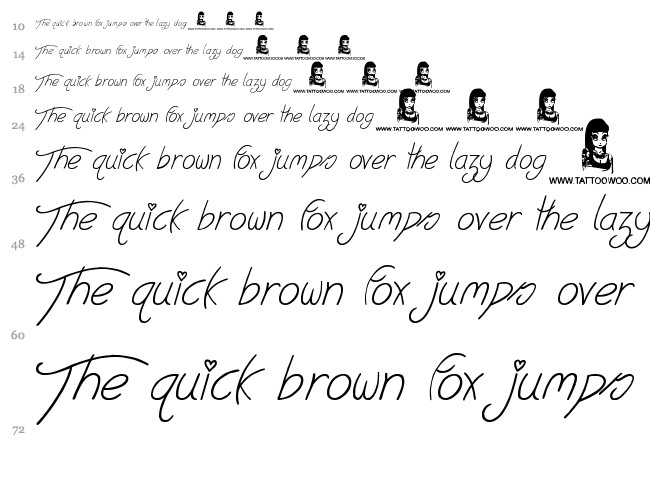 10 The quick brown fox jumps over the lazy dog WWW.TATTOOWOO.COM WWW.TATTOOWOO.COM WWW.TATTOOWOO.COM
14 The quick brown fox jumps over the lazy dog WWW.TATTOOWOO.COM WWW.TATTOOWOO.COM WWW.TATTOOWOO.COM
18 The quick brown fox jumps over the lazy dog WWW.TATTOOWOO.COM WWW.TATTOOWOO.COM WWW.TATTOOWOO.COM
24 The quick brown fox jumps over the lazy dog WWW.TATTOOWOO.COM WWW.TATTOOWOO.COM WWW.TATTOOWOO.COM
36 The quick brown fox jumps over the lazy dog WWW.TATTOOWOO.COM
48 The quick brown fox jumps over the lazy
60 The quick brown fox jumps over
72 The quick brown fox jumps